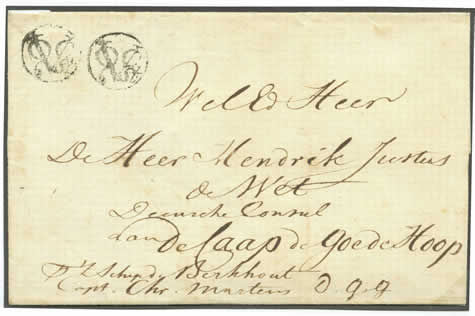 Wel Ed Heer
De Heer Hendrik Justus
de Wet
Deensche Consul
aan de Caap de Goede Hoop
pr. 't Schip de Berkhout
Capt. Chr. Martens D. G. G